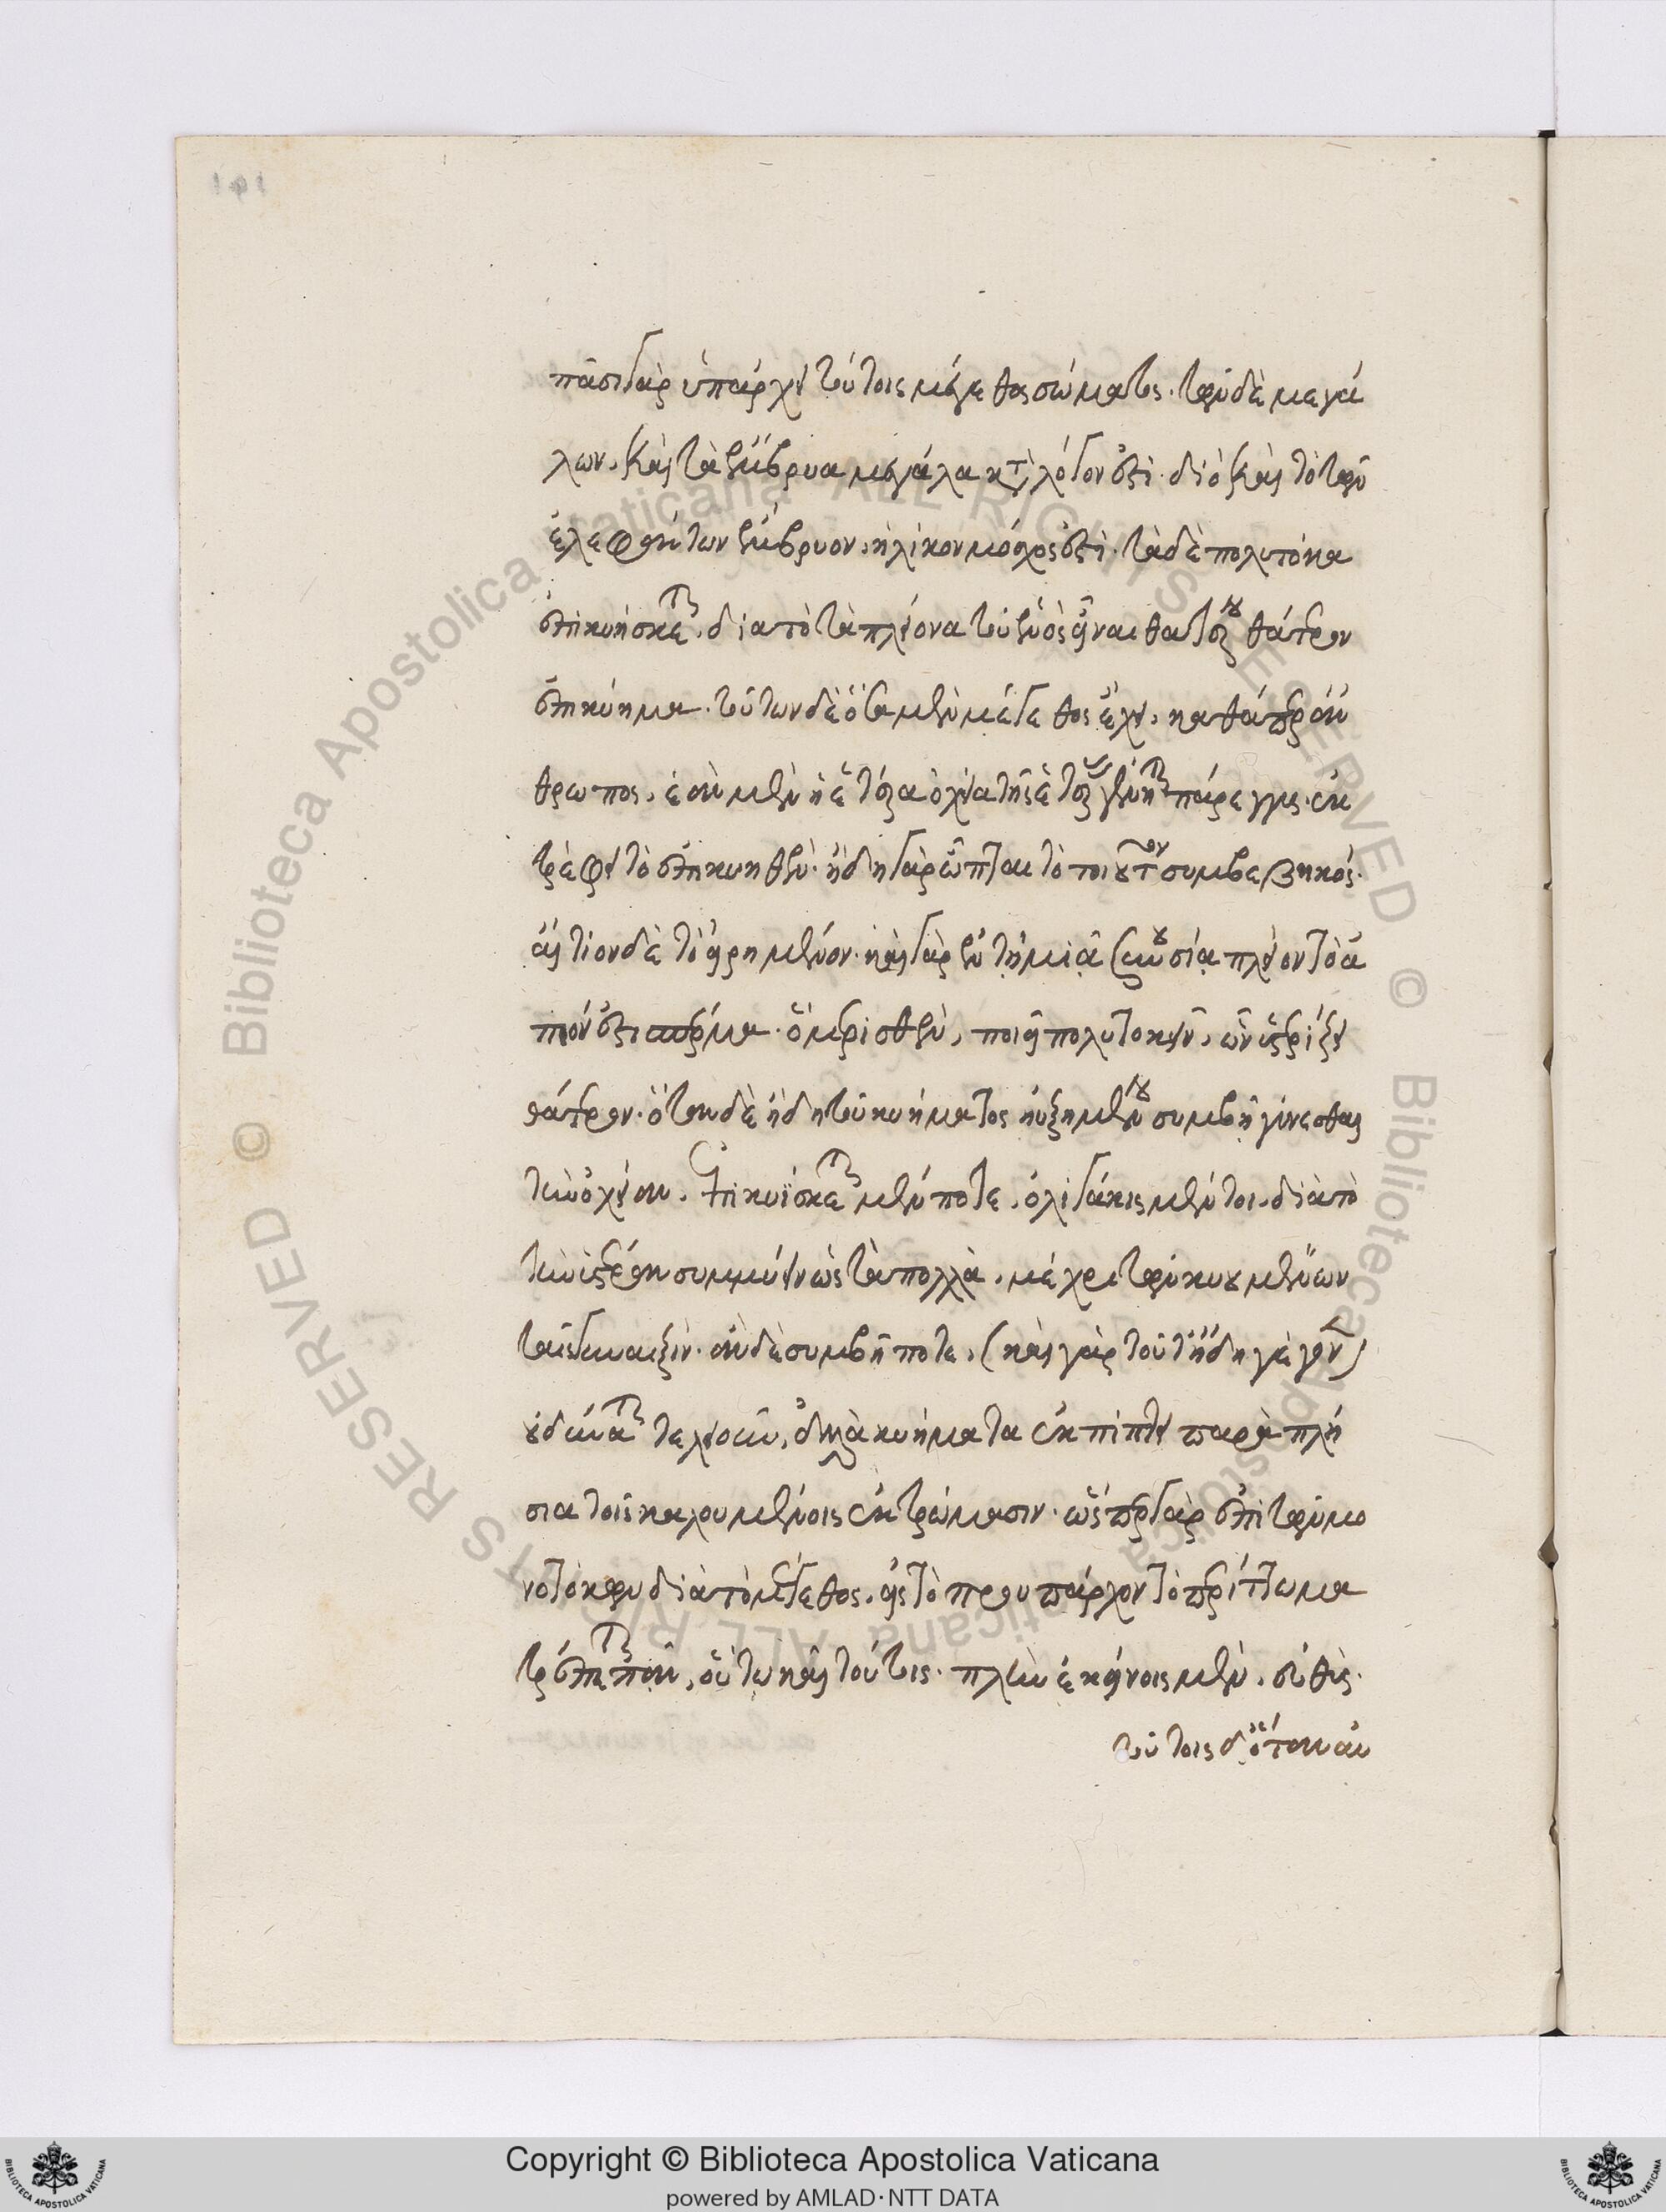 101
πᾶσι γὰρ ὑπάρχει τούτοις μέγεθος σώματος. τῶν δὲ μεγά
λων, καὶ τὰ ἔμβρυα μεγάλα κατὰ λόγον ἐστί. διὸ καὶ τὸ τῶν
ἐλεφάντων ἔμβρυον, ἡλίκον μόσχος ἐστί. τὰ δὲ πολυτόκα
ἐπικυΐσκεται, διὰ τὸ τὰ πλείονα τοῦ ἑνὸς εἶναι θατέρου θάτερον
ἐπικύημα. τούτων δὲ ὅσα μὲν μέγεθος ἔχει, καθάπερ ἄν
θρωπος, ἐὰν μὲν ἡ ἑτέρα ὀχεία τῆς ἑτέρας γένηται πάρεγγυς. ἐκ
τρέφει τὸ ἐπικυηθέν. ἤδη γὰρ ὦπται τὸ τοιοῦτον συμβεβηκός.
αἴτιον δὲ τὸ εἰρημένον. καὶ γὰρ ἐν τῇ μιᾷ συνουσίᾳ πλεῖον τὸ ἀ
πιόν ἐστι σπέρμα. ὃ μερισθέν, ποιεῖ πολυτοκεῖν, ὧν ὑστερίζει
θάτερον. ὅταν δὲ ἤδη τοῦ κυήματος ηὐξημένου συμβῇ γίνεσθαι
τὴν ὀχείαν, ἐπικυΐσκεται μέν ποτε, ὀλιγάκις μέντοι, διὰ τὸ
τὴν ὑστέραν συμμύειν ὡς τὰ πολλὰ, μέχρι τῶν κυουμένων
ταῖς γυναιξίν. ἂν δὲ συμβῇ ποτε, (καὶ γὰρ τοῦτ' ἤδη γέγονεν)
οὐ δύναται τελειοῦν, ἀλλὰ κυήματα ἐκπίπτει παραπλή
σια τοῖς καλουμένοις ἐκτρώμασιν. ὥσπερ γὰρ ἐπὶ τῶν μο
νοτόκων διὰ τὸ μέγεθος, εἰς τὸ προϋπάρχον τὸ περίττωμα
τρέπεται πᾶν, οὕτω καὶ τούτοις. πλὴν ἐκείνοις μέν, εὐθύς.
τούτοις δ' ὅταν αὐ
Copyright © Biblioteca Apostolica Vaticana
powered by AMLAD·NTT DATA